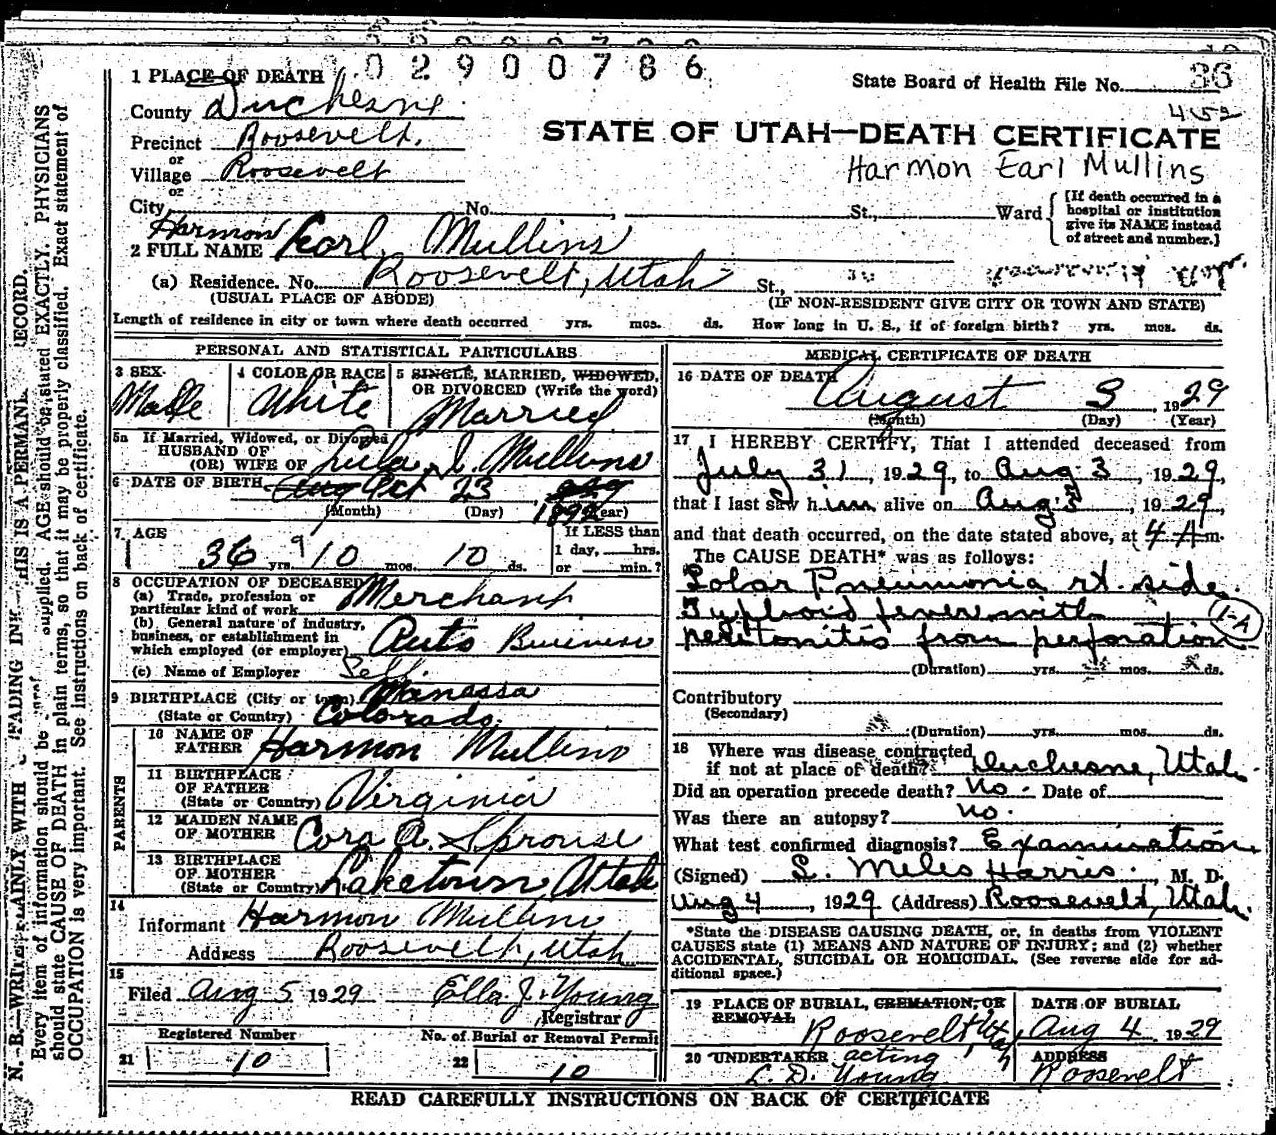 0 2 9 0 0 7 8 6
1 PLACE OF DEATH
State Board of Health File No. 36
452
County Duchesne.
STATE OF UTAH—DEATH CERTIFICATE
Precinct Roosevelt.
Harmon Earl Mullins
or
Village Roosevelt
or
City No. , St., Ward
[If death occurred in a hospital or institution give its NAME instead of street and number.]
Harmon
2 FULL NAME Earl Mullins
(a) Residence. No. Roosevelt, Utah St.,
(USUAL PLACE OF ABODE) (IF NON-RESIDENT GIVE CITY OR TOWN AND STATE)
Length of residence in city or town where death occurred yrs. mos. ds. How long in U. S., if of foreign birth? yrs. mos. ds.
PERSONAL AND STATISTICAL PARTICULARS
3 SEX 4 COLOR OR RACE 5 SINGLE, MARRIED, WIDOWED, OR DIVORCED (Write the word)
Male White Married
5a If Married, Widowed, or Divorced
HUSBAND OF
(OR) WIFE OF Lula I. Mullins
6 DATE OF BIRTH Aug Oct 23 1892
(Month) (Day) (Year)
7 AGE If LESS than
36 yrs. 9 10 mos. 10 ds. 1 day, hrs.
or min.?
8 OCCUPATION OF DECEASED
(a) Trade, profession or
particular kind of work Merchant
(b) General nature of industry,
business, or establishment in
which employed (or employer) Auto Business
(c) Name of Employer Self
9 BIRTHPLACE (City or town) Manassa
(State or Country) Colorado.
PARENTS
10 NAME OF
FATHER Harmon Mullins
11 BIRTHPLACE
OF FATHER
(State or Country) Virginia
12 MAIDEN NAME
OF MOTHER Cora A. Sprouse
13 BIRTHPLACE
OF MOTHER
(State or Country) Laketown, Utah
14
Informant Harmon Mullins
Address Roosevelt, Utah
15
Filed Aug 5 1929 Ella J. Young
Registrar
Registered Number No. of Burial or Removal Permit
21 10 22 10
MEDICAL CERTIFICATE OF DEATH
16 DATE OF DEATH
August 3, 1929
(Month) (Day) (Year)
17 I HEREBY CERTIFY, That I attended deceased from
July 31, 1929, to Aug 3, 1929,
that I last saw him alive on Aug 3, 1929,
and that death occurred, on the date stated above, at 4 A m.
The CAUSE DEATH* was as follows:
Lobar Pneumonia rt. side.
Typhoid fever with
peritonitis from perforation
1-A
(Duration) yrs. mos. ds.
Contributory
(Secondary)
(Duration) yrs. mos. ds.
18 Where was disease contracted
if not at place of death? Duchesne, Utah.
Did an operation precede death? no. Date of
Was there an autopsy? no.
What test confirmed diagnosis? Examination.
(Signed) L. Miles Harris., M. D.
Aug 4, 1929 (Address) Roosevelt, Utah.
*State the DISEASE CAUSING DEATH, or, in deaths from VIOLENT
CAUSES state (1) MEANS AND NATURE OF INJURY; and (2) whether
ACCIDENTAL, SUICIDAL OR HOMICIDAL. (See reverse side for ad-
ditional space.)
19 PLACE OF BURIAL, CREMATION, OR REMOVAL DATE OF BURIAL
Roosevelt, Utah Aug 4 1929
20 UNDERTAKER acting ADDRESS
L. D. Young Roosevelt
READ CAREFULLY INSTRUCTIONS ON BACK OF CERTIFICATE
N. B.—WRITE PLAINLY WITH FADING INK—THIS IS A PERMANENT RECORD.
Every item of information should be supplied. AGE should be stated EXACTLY. PHYSICIANS
should state CAUSE OF DEATH in plain terms, so that it may be properly classified. Exact statement of
OCCUPATION is very important. See instructions on back of certificate.